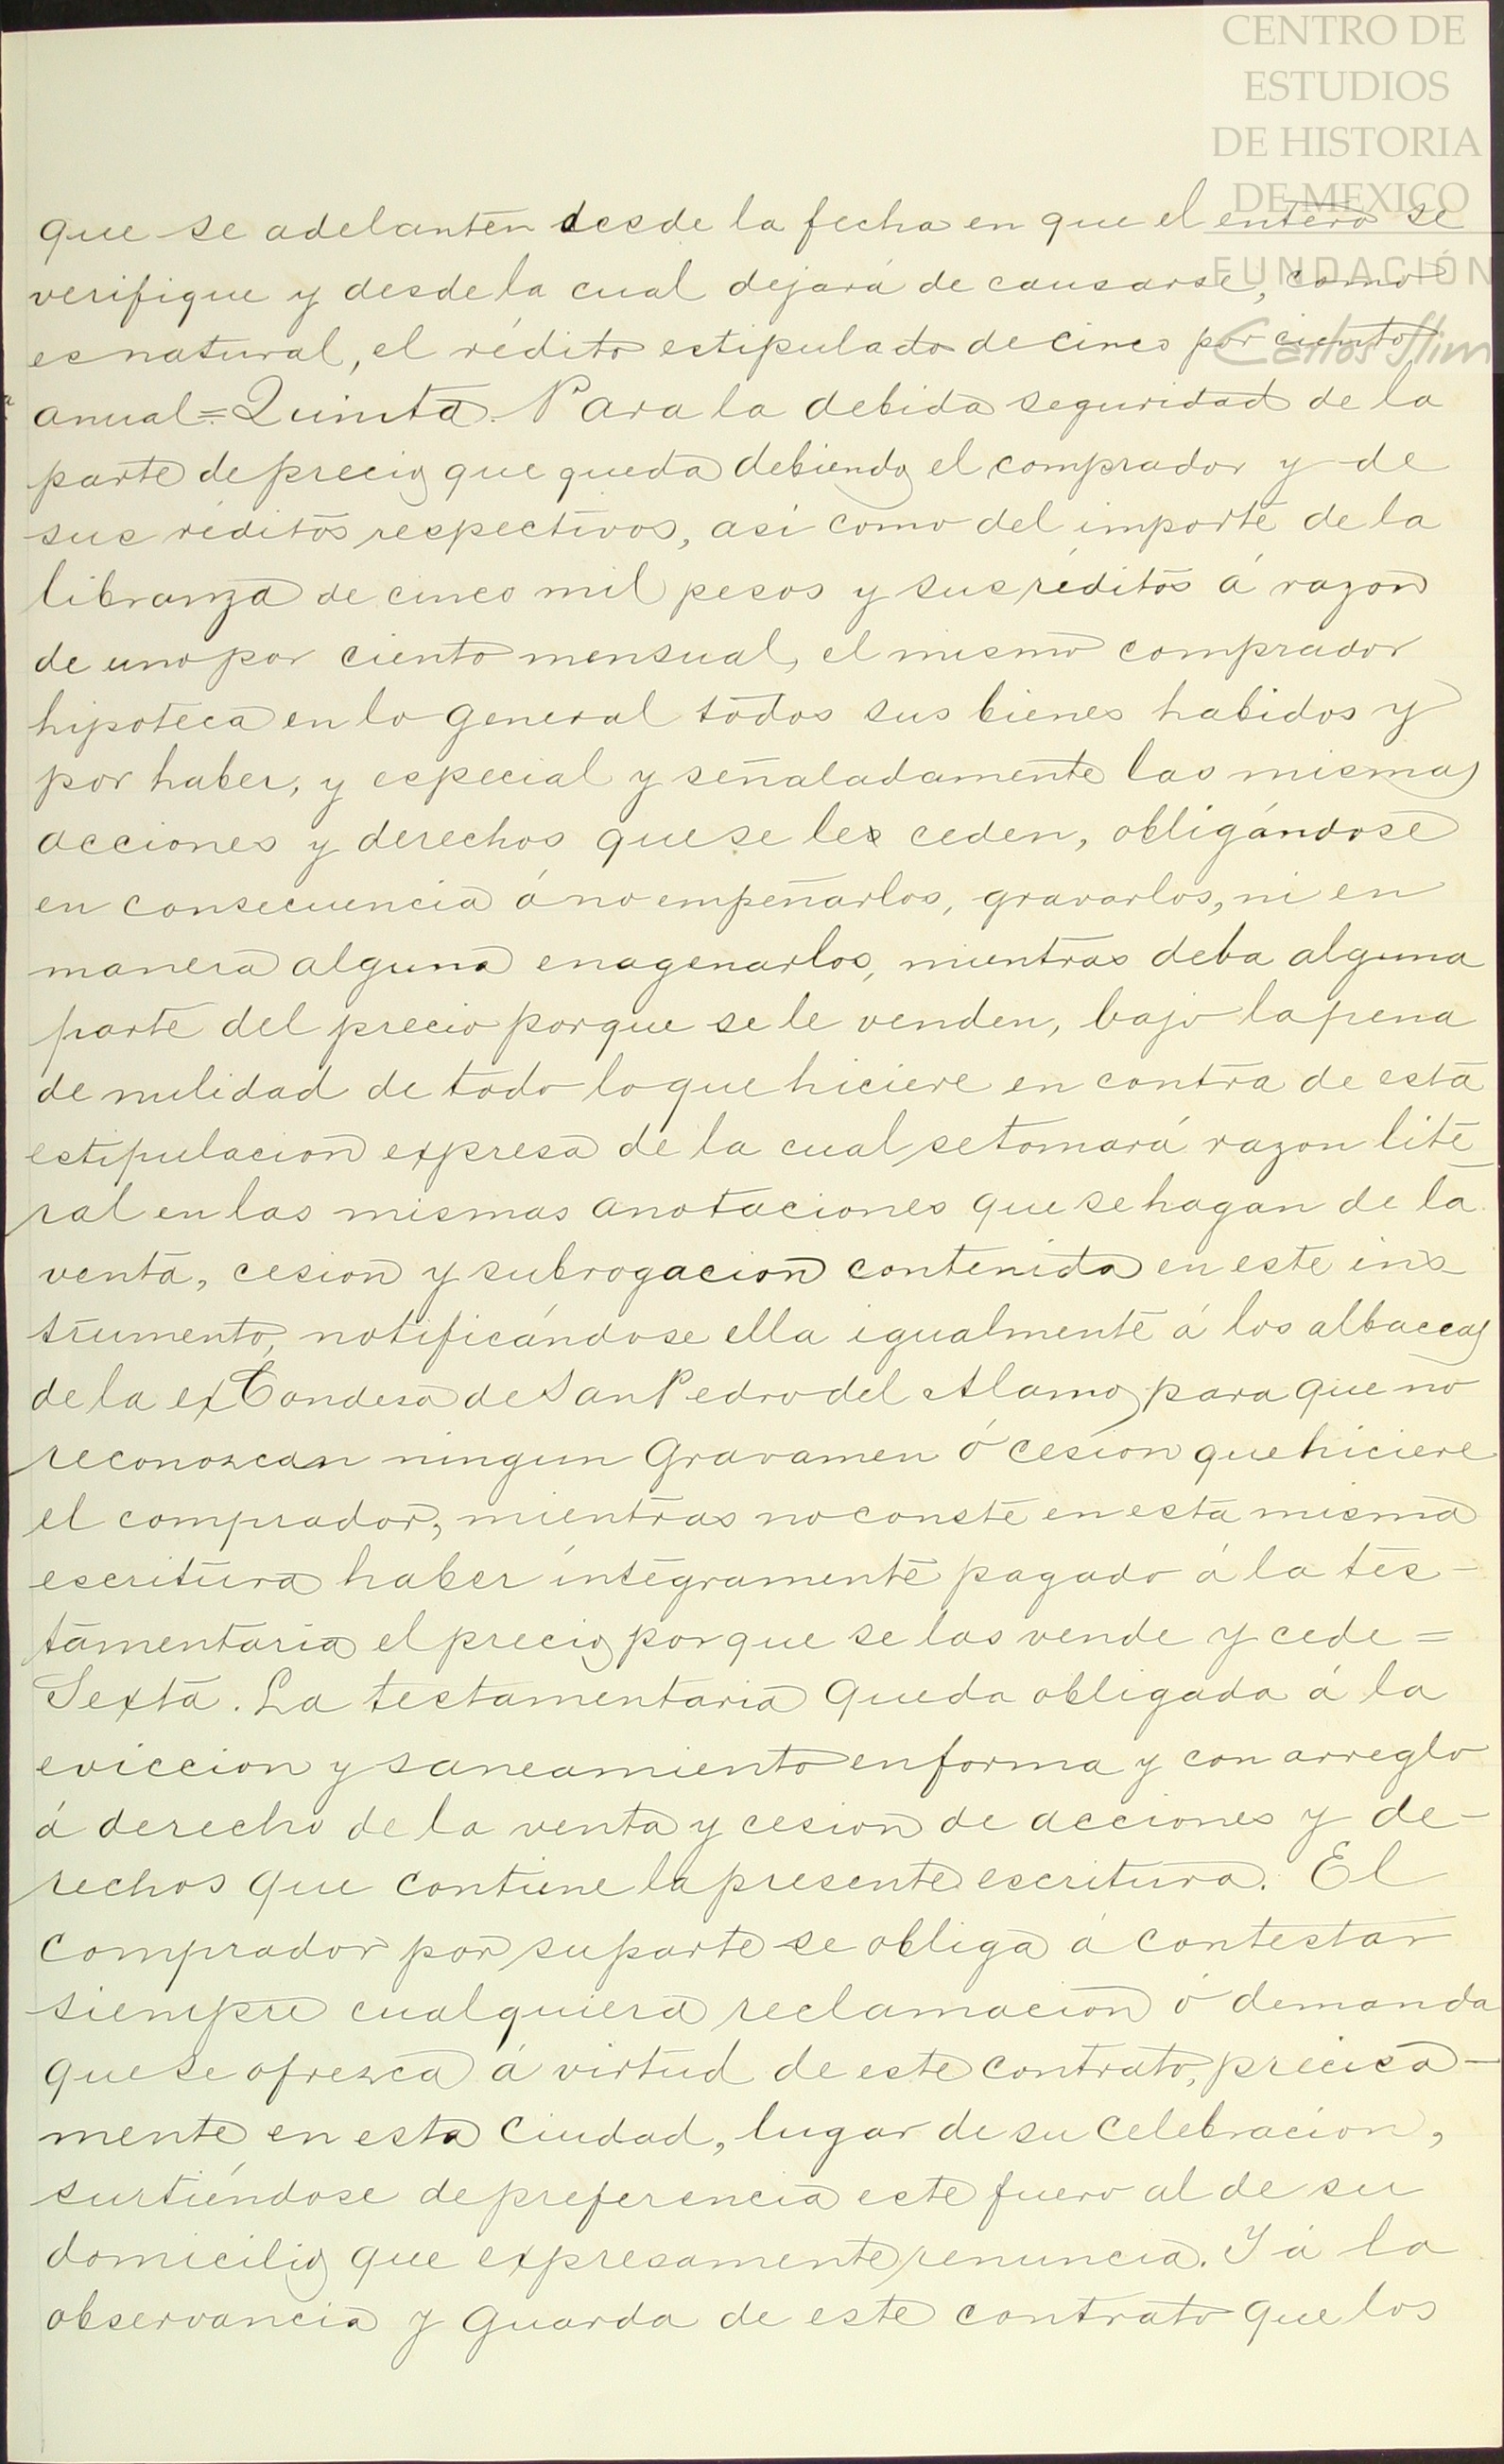 CENTRO DE
ESTUDIOS
DE HISTORIA
DE MEXICO
FUNDACIÓN
Carlos Slim
que se adelanten desde la fecha en que el entero se
verifique y desde la cual dejará de causarse, como
es natural, el rédito estipulado de cinco por ciento
anual = Quinta. Para la debida seguridad de la
parte de precio que queda debiendo el comprador y de
sus réditos respectivos, asi como del importe de la
libranza de cinco mil pesos y sus réditos á razon
de uno por ciento mensual, el mismo comprador
hipoteca en lo general todos sus bienes habidos y
por haber, y especial y señaladamente las mismas
acciones y derechos que se les ceden, obligándose
en consecuencia á no empeñarlos, gravarlos, ni en
manera alguna enagenarlos, mientras deba alguna
parte del precio porque se le venden, bajo la pena
de nulidad de todo lo que hiciere en contra de esta
estipulacion expresa de la cual se tomará razon lite
ral en las mismas anotaciones que se hagan de la
venta, cesion y subrogacion contenida en este ins
trumento, notificándose ella igualmente á los albaceas
de la ex Condesa de San Pedro del Alamo, para que no
reconozcan ningun gravamen ó cesion que hiciere
el comprador, mientras no conste en esta misma
escritura haber íntegramente pagado á la tes-
tamentaria el precio porque se las vende y cede =
Sexta. La testamentaria queda obligada á la
eviccion y saneamiento en forma y con arreglo
á derecho de la venta y cesion de acciones y de-
rechos que contiene la presente escritura. El
comprador por su parte se obliga á contestar
siempre cualquiera reclamacion ó demanda
que se ofrezca á virtud de este contrato, precisa-
mente en esta Ciudad, lugar de su celebracion,
surtiéndose de preferencia este fuero al de su
domicilio que expresamente renuncia. Y á la
observancia y guarda de este contrato que los